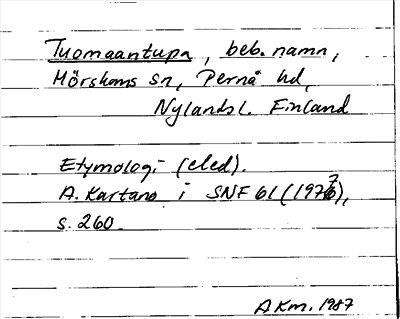 Tuomaantupa, beb.namn,
Mörskoms sn, Pernå hd,
Nylands l. Finland
Etymologi (eled).
A. Kartano i SNF 61 (1976),
s. 260.
AKm. 1987